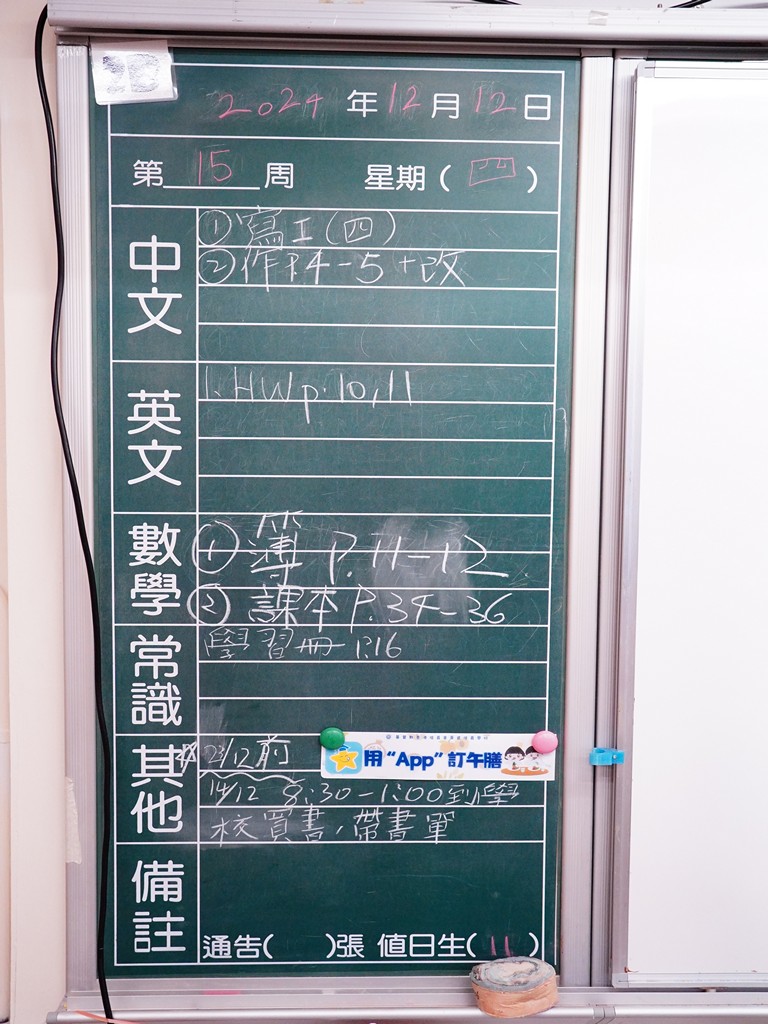 2024 年 12 月 12 日
第 15 周 星期 ( 四 )
中文
① 寫工(四)
② 作P.4-5 + 改
英文
1. HW p.10,11
數學
① 簿 P.11-12
② 課本 P.34-36
常識
學習冊 P.16
其他
23/12前
用“App”訂午膳
14/12 8:30-1:00到學
校買書,帶書單
備註
通告( )張 值日生( 11 )